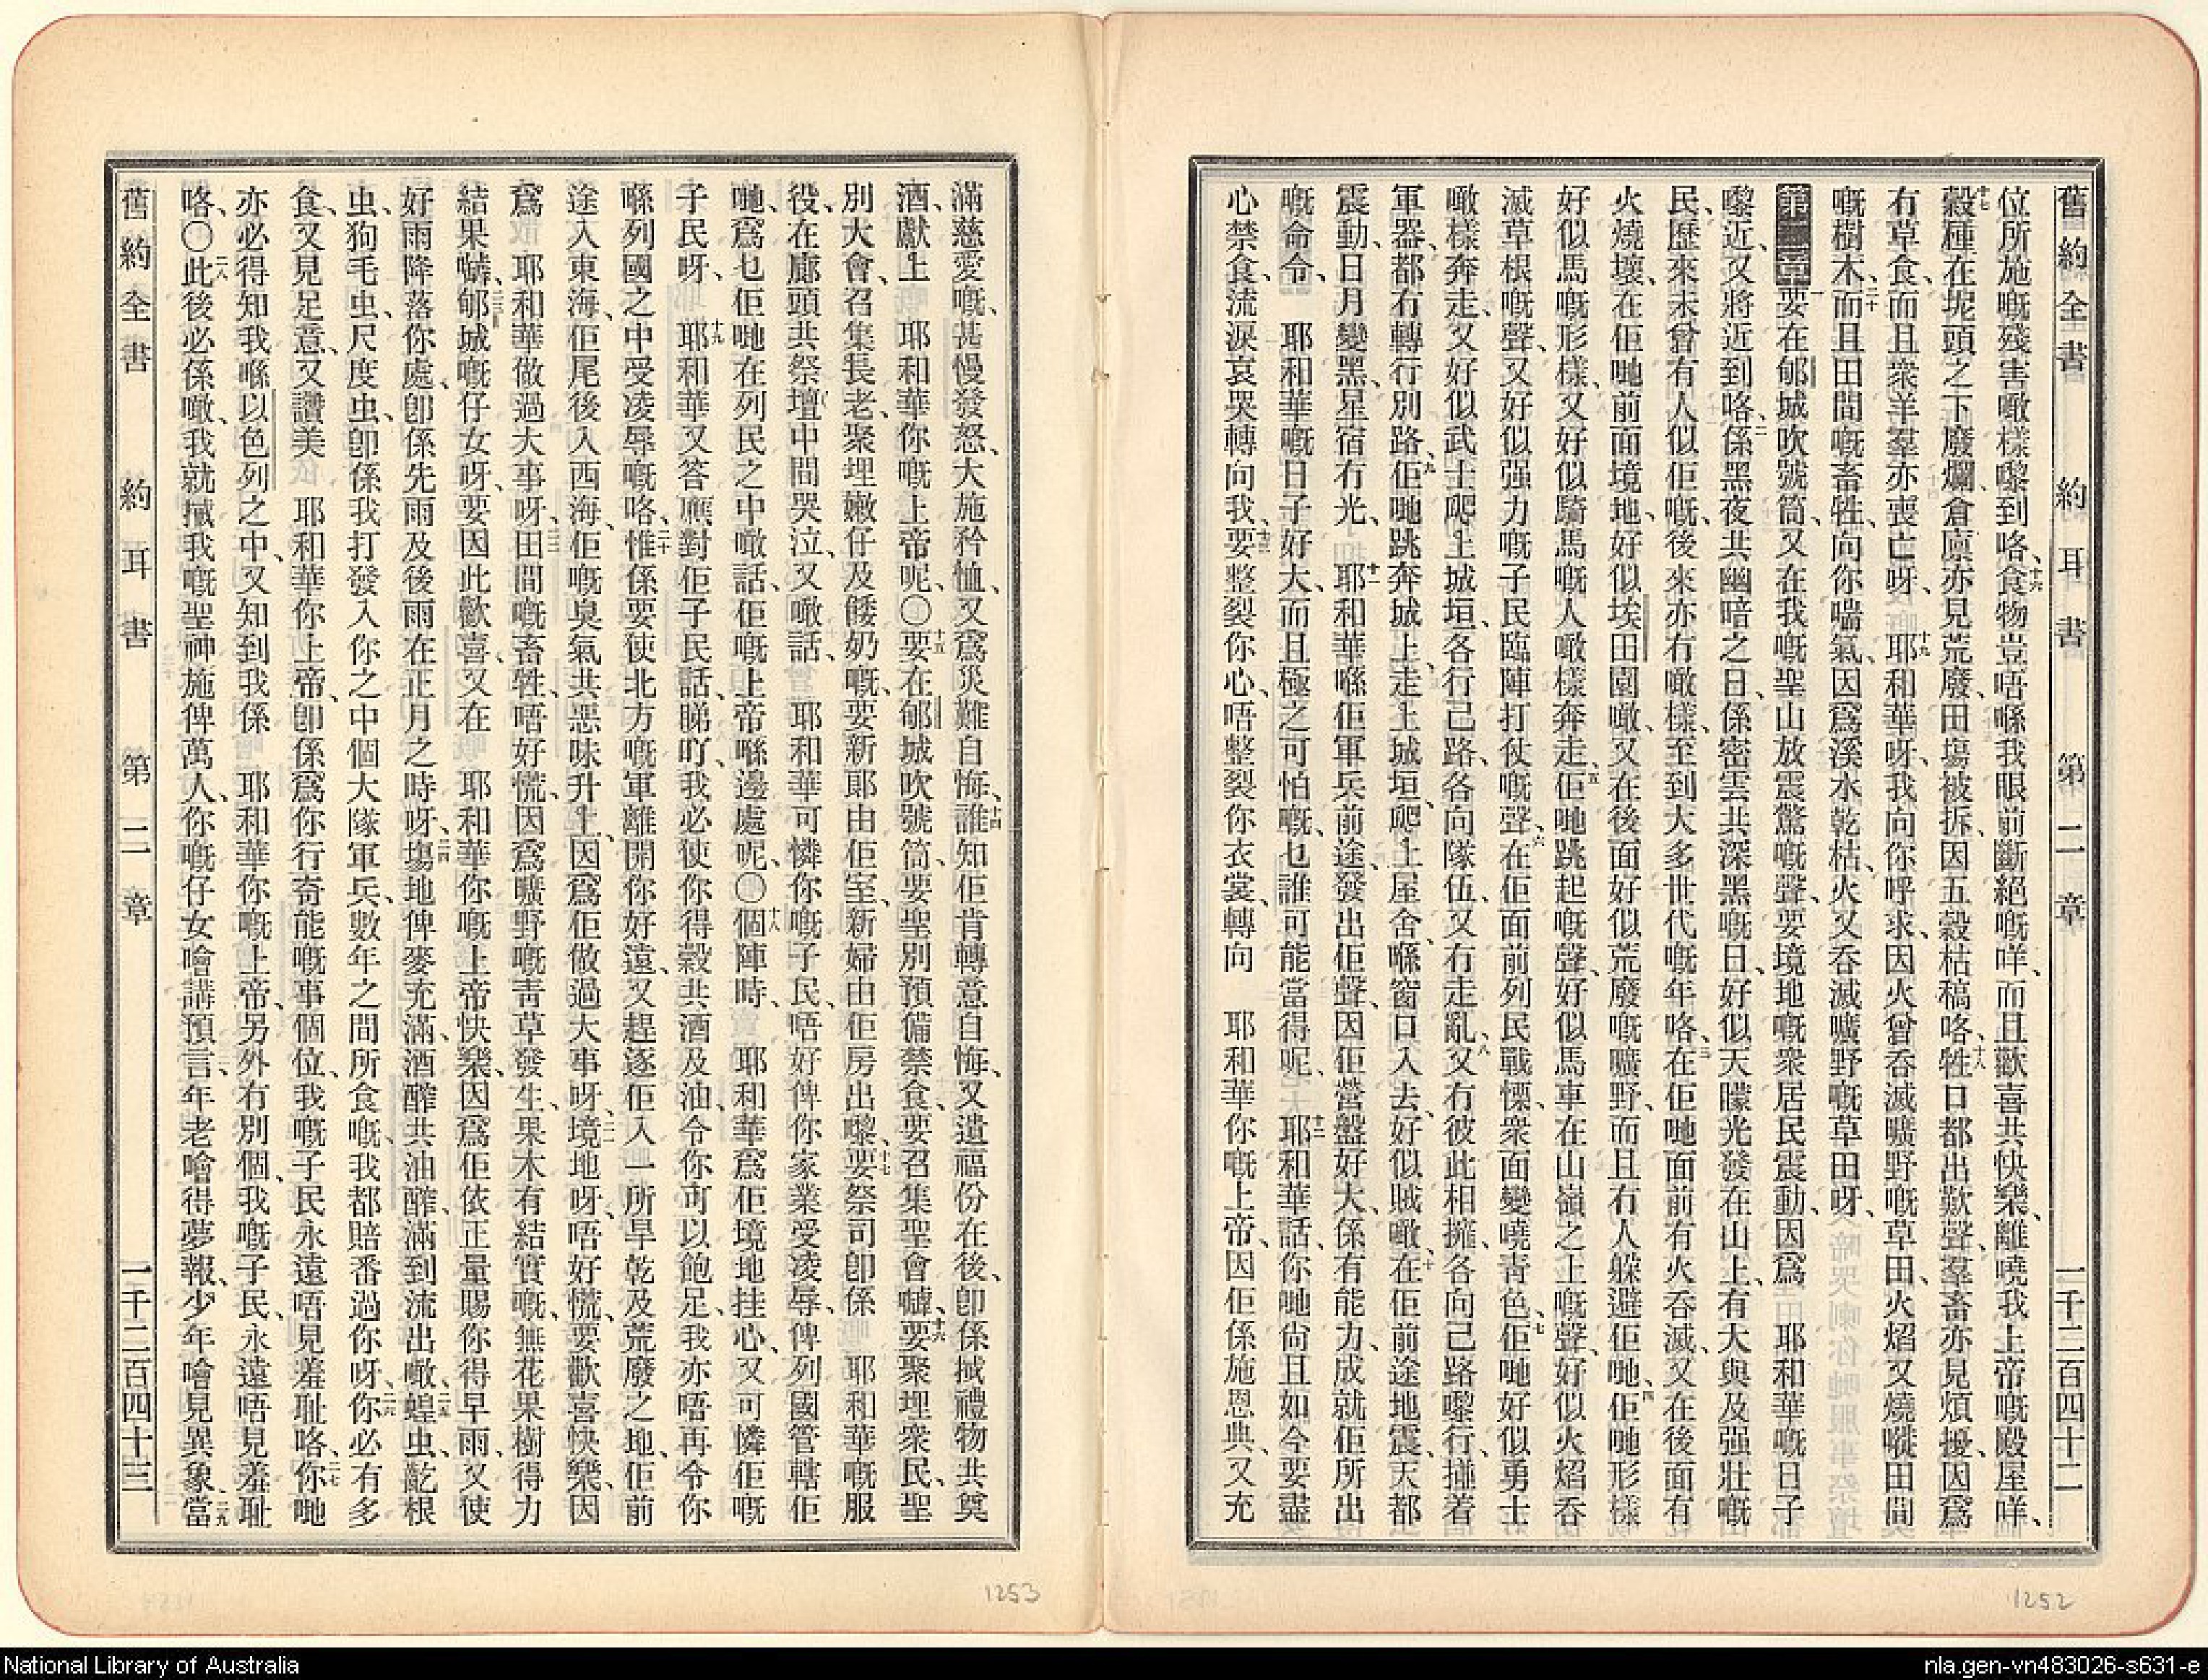 舊約全書 約耳書 第二章 一千二百四十二
位所施嘅殘害噉樣嚟到咯、十六食物豈唔喺我眼前斷絕嘅咩、而且歡喜共快樂、離曉我上帝嘅殿屋咩、
十七穀種在坭頭之下廢爛、倉廩亦見荒廢、田塲被拆、因五穀枯稿咯、十八牲口都出歎聲、羣畜亦見煩擾、因爲
冇草食、而且衆羊羣亦喪亡呀、十九耶和華呀、我向你呼求、因火曾吞滅曠野嘅草田、火焰又燒嘥田間
嘅樹木、二十而且田間嘅畜牲、向你喘氣、因爲溪水乾枯、火又吞滅曠野嘅草田呀、
第二章 一要在郇城吹號筒、又在我嘅聖山放震驚嘅聲、要境地嘅衆居民震動、因爲 耶和華嘅日子
嚟近、又將近到咯、二係黑夜共幽暗之日、係密雲共深黑嘅日、好似天矇光發在山上、有大與及强壯嘅
民、歷來未曾有人似佢嘅、後來亦冇噉樣、至到大多世代嘅年咯、三在佢哋面前有火吞滅、又在後面有
火燒壞、在佢哋前面境地、好似埃田園噉、又在後面好似荒廢嘅曠野、而且冇人躲避佢哋、四佢哋形樣
好似馬嘅形樣、又好似騎馬嘅人噉樣奔走、五佢哋跳起嘅聲、好似馬車在山嶺之上嘅聲、好似火焰吞
滅草根嘅聲、又好似强力嘅子民臨陣打仗嘅聲、六在佢面前列民戰慄、衆面變嘵青色、七佢哋好似勇士
噉樣奔走、又好似武士爬上城垣、各行己路、各向隊伍、又冇走亂、八又冇彼此相擁、各向己路嚟行、撻着
軍器、都冇轉行別路、九佢哋跳奔城上、走上城垣、爬上屋舍、喺窗口入去、好似賊噉、十在佢前途地震、天都
震動、日月變黑、星宿冇光、十一耶和華喺佢軍兵前途、發出佢聲、因佢營盤好大、係有能力、成就佢所出
嘅命令、 耶和華嘅日子好大、而且極之可怕嘅、乜誰可能當得呢、十二耶和華話、你哋尙且如今要盡
心禁食、流淚哀哭轉向我、十三要整裂你心、唔整裂你衣裳、轉向 耶和華你嘅上帝、因佢係施恩典、又充
舊約全書 約耳書 第二章 一千二百四十三
滿慈愛嘅、甚慢發怒、大施矜恤、又爲災難自悔、十四誰知佢肯轉意自悔、又遺福份在後、卽係搣禮物共奠
酒、獻上 耶和華你嘅上帝呢、〇十五要在郇城吹號筒、要聖別預備禁食、要召集聖會嚹、十六要聚埋衆民、聖
別大會、召集長老、聚埋嫩仔及餧奶嘅、要新郎由佢室、新婦由佢房出嚟、十七要祭司卽係 耶和華嘅服
役、在廊頭共祭壇中間哭泣、又噉話、 耶和華可憐你嘅子民、唔好俾你家業受凌辱、俾列國管轄佢
哋、爲乜佢哋在列民之中噉話、佢嘅上帝喺邊處呢、〇十八個陣時、 耶和華爲佢境地挂心、又可憐佢嘅
子民呀、 十九耶和華又答應對佢子民話、睇吖、我必使你得穀共酒及油、令你可以飽足、我亦唔再令你
喺列國之中受凌辱嘅咯、二十惟係要使北方嘅軍離開你好遠、又趕逐佢入一所旱乾及荒廢之地、佢前
途入東海、佢尾後入西海、佢嘅臭氣共惡味升上、因爲佢做過大事呀、二一境地呀、唔好慌、要歡喜快樂、因
爲 耶和華做過大事呀、二二田間嘅畜牲、唔好慌、因爲曠野嘅靑草發生、果木有結實嘅、無花果樹得力
結果嚹、二三郇城嘅仔女呀、要因此歡喜、又在 耶和華你嘅上帝快樂、因爲佢依正量賜你得早雨、又使
好雨降落你處、卽係先雨及後雨在正月之時呀、二四塲地俾麥充滿、酒醡共油醡、滿到流出噉、二五蝗虫、齕根
虫、狗毛虫、尺度虫、卽係我打發入你之中個大隊軍兵、數年之間所食嘅、我都賠番過你呀、二六你必有多
食、又見足意、又讚美 耶和華你上帝、卽係爲你行奇能嘅事個位、我嘅子民永遠唔見羞耻咯、二七你哋
亦必得知我喺以色列之中、又知到我係 耶和華你嘅上帝、另外冇別個、我嘅子民、永遠唔見羞耻
咯、〇二八此後必係噉、我就搣我嘅聖神施俾萬人、你嘅仔女噲講預言、年老噲得夢報、少年噲見異象、二九當
1253
1252
National Library of Australia
nla.gen-vn483026-s631-e